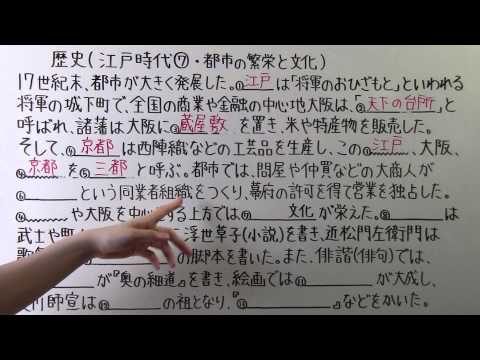 歴史(江戸時代⑦・都市の繁栄と文化)
17世紀末、都市が大きく発展した。江戸は「将軍のおひざもと」といわれる
将軍の城下町で、全国の商業や金融の中心地大阪は、「天下の台所」と
呼ばれ、諸藩は大阪に蔵屋敷を置き、米や特産物を販売した。
そして、京都は西陣織などの工芸品を生産し、この江戸、大阪、
京都を三都と呼ぶ。都市では、問屋や仲買などの大商人が
という同業者組織をつくり、幕府の許可を得て営業を独占した。
や大阪を中心 する上方では 文化が栄えた。 は
武士や町 浮世草子(小説)を書き、近松門左衛門は
歌 の脚本を書いた。また、俳諧(俳句)では、
が『奥の細道』を書き、絵画では が大成し、
川師宣は の祖となり、 などをかいた。